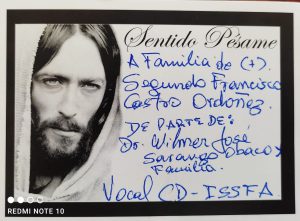 Sentido Pésame
A Familia de (+).
Segundo Francisco
Castos Ordoñez.
DE PARTE DE:
Dr. Wilmer José
Sarango Obaco y
Familia.
Vocal CD-ISSFA
REDMI NOTE 10